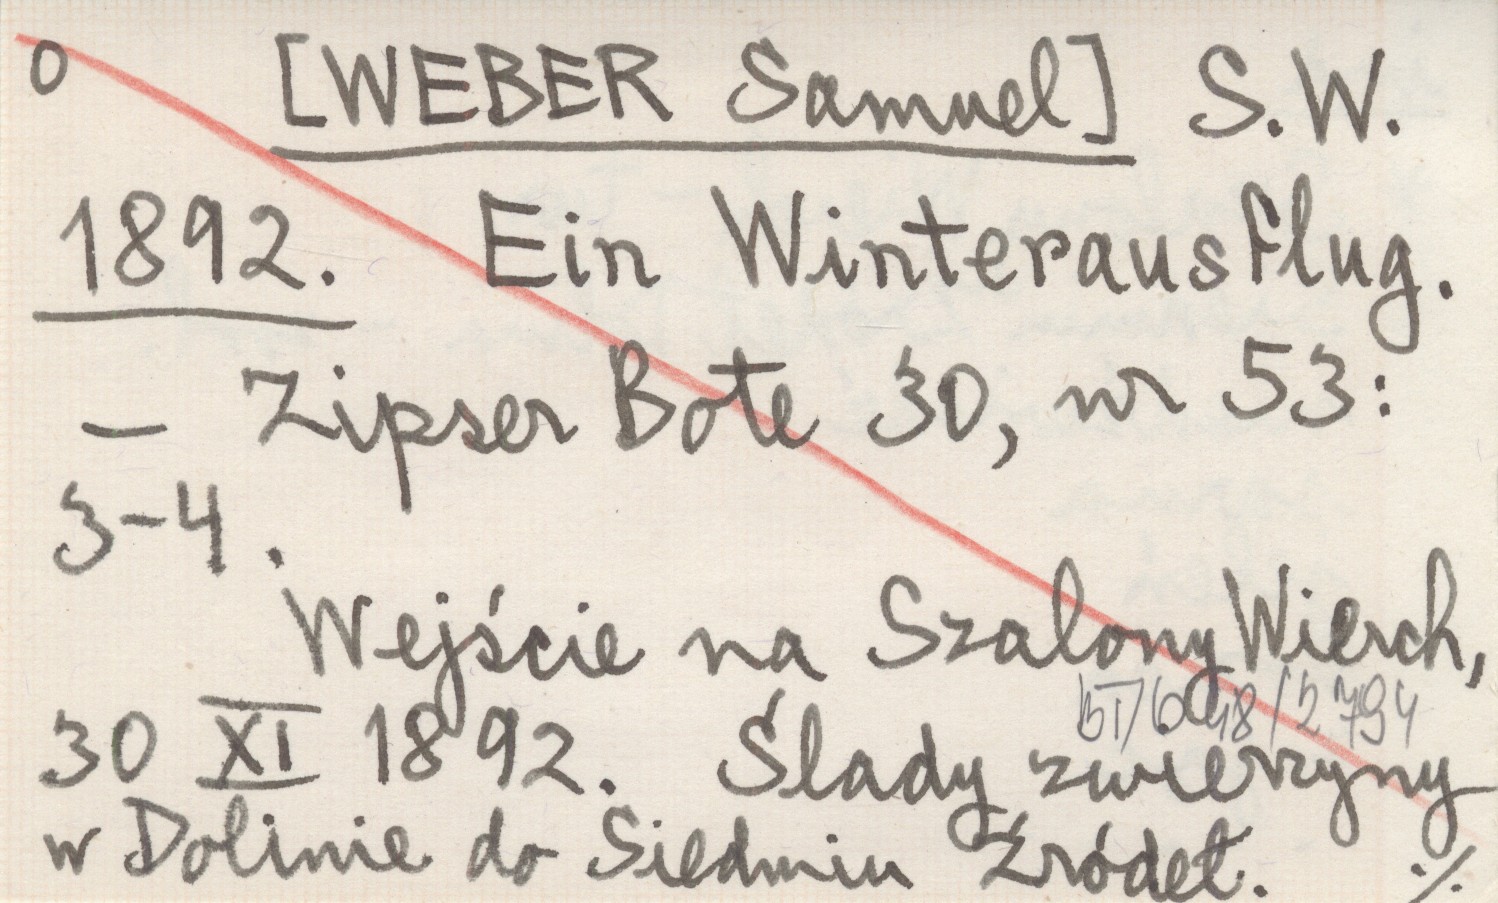 0 [WEBER Samuel] S.W.
1892. Ein Winterausflug.
— Zipser Bote 30, nr 53:
3-4.
Wejście na Szalony Wierch,
30 XI 1892. Ślady zwierzyny
w Dolinie do Siedmiu Źródeł.
./.